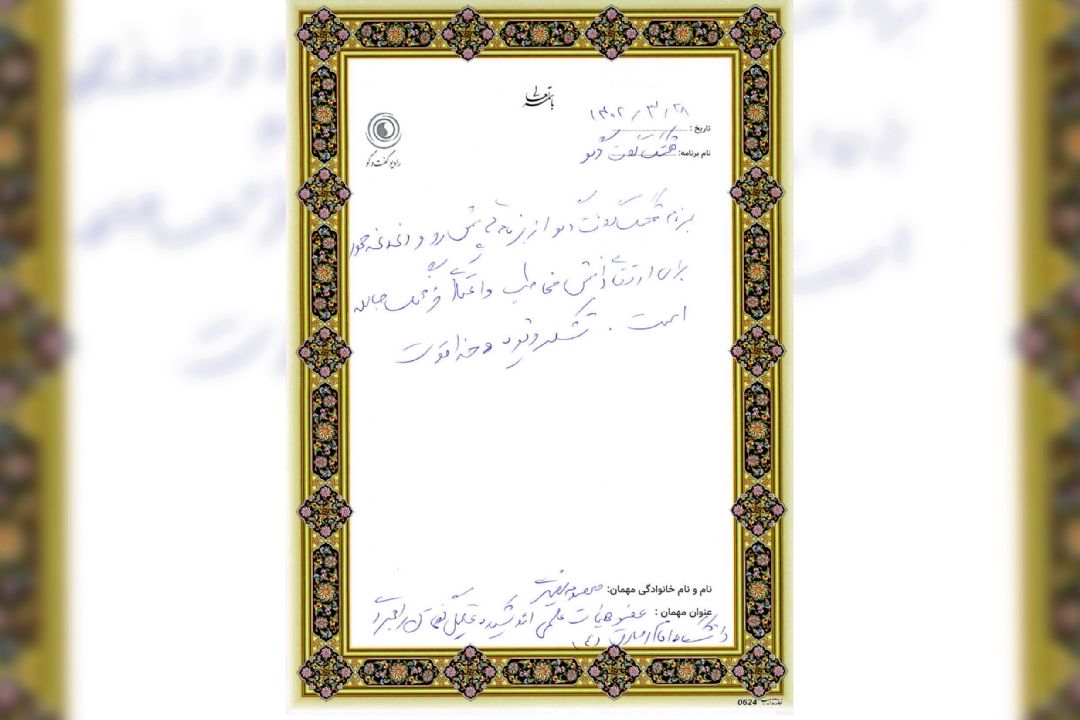 باسمه تعالی
رادیو گفت و گو
تاریخ: ۱۴۰۲/۳/۲۸
نام برنامه: گفت و گو
برنامه گفت و گو از برنامه های پیش رو و دغدغه محور
برای ارتقای دانش مخاطب و اعتلای فرهنگ جامعه
است. تشکر ویژه و خدا قوت
نام و نام خانوادگی مهمان: معصومه
عنوان مهمان: عضو هیات علمی
دانشگاه امام صادق (ع)
0624